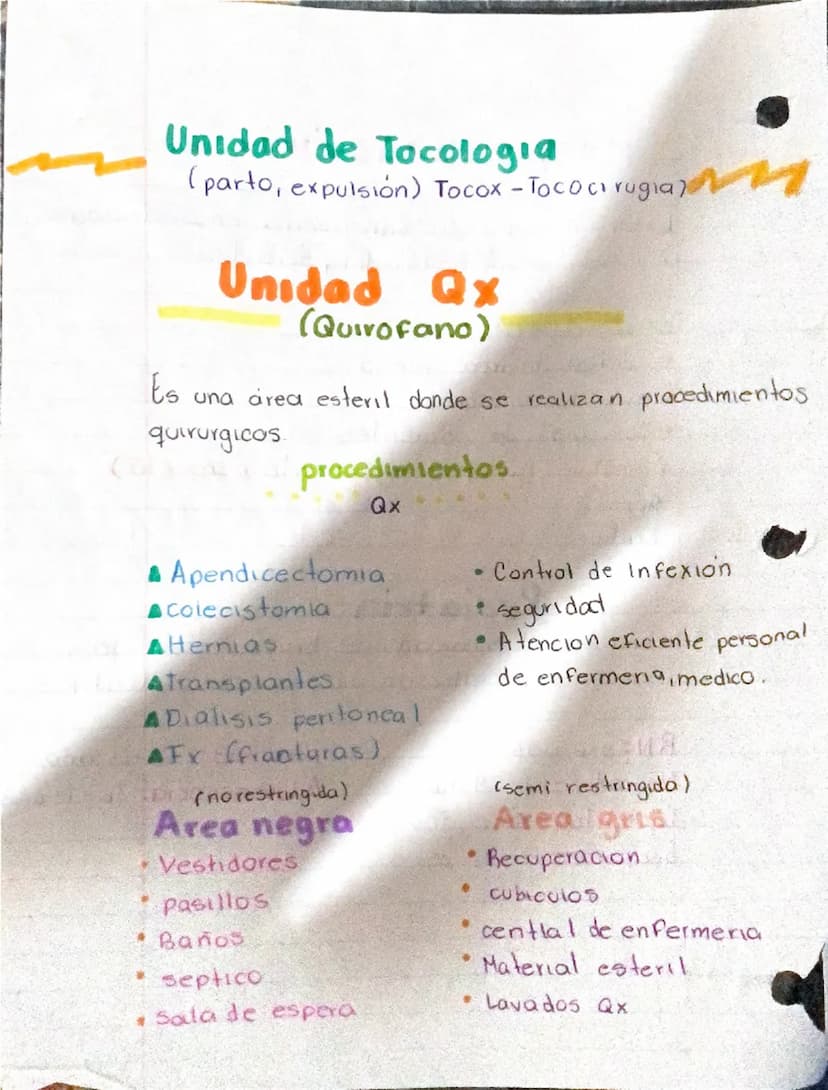 Unidad de Tocologia
(parto, expulsión) Tocox - Tococirugia)
Unidad Qx
(Quirofano)
Es una área esteril donde se realizan procedimientos
quirurgicos.
procedimientos
Qx
Apendicectomia
colecistomia
Hernias
Transplantes
Dialisis peritoneal
Fx (fracturas)
• Control de Infexión
• seguridad
• Atencion eficiente personal
de enfermeria, medico.
(no restringida)
Area negra
• Vestidores
• pasillos
• Baños
• septico
• Sala de espera
(semi restringida)
Area gris
• Recuperacion
• cubiculos
• central de enfermeria
• Material esteril
• Lavados Qx